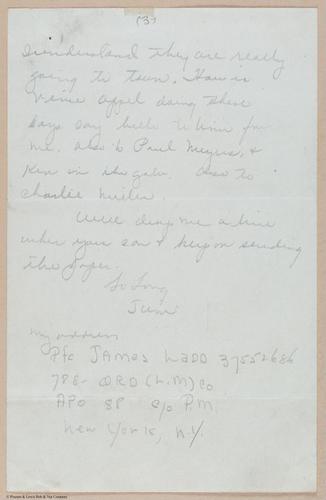 (3)
I understand they are really
going to town. How is
Vince Appel doing these
days say hello to him for
me. Also to Paul Meyers, &
Ken in the gate. Also to
Charlie Miller.
Well drop me a line
when you can & keep on sending
the paper.
So Long
Jim
My address
Pfc JAMES LADD 37552686
788- ORD (L.M) Co
APO 88 c/o P.M.
New York, N.Y.